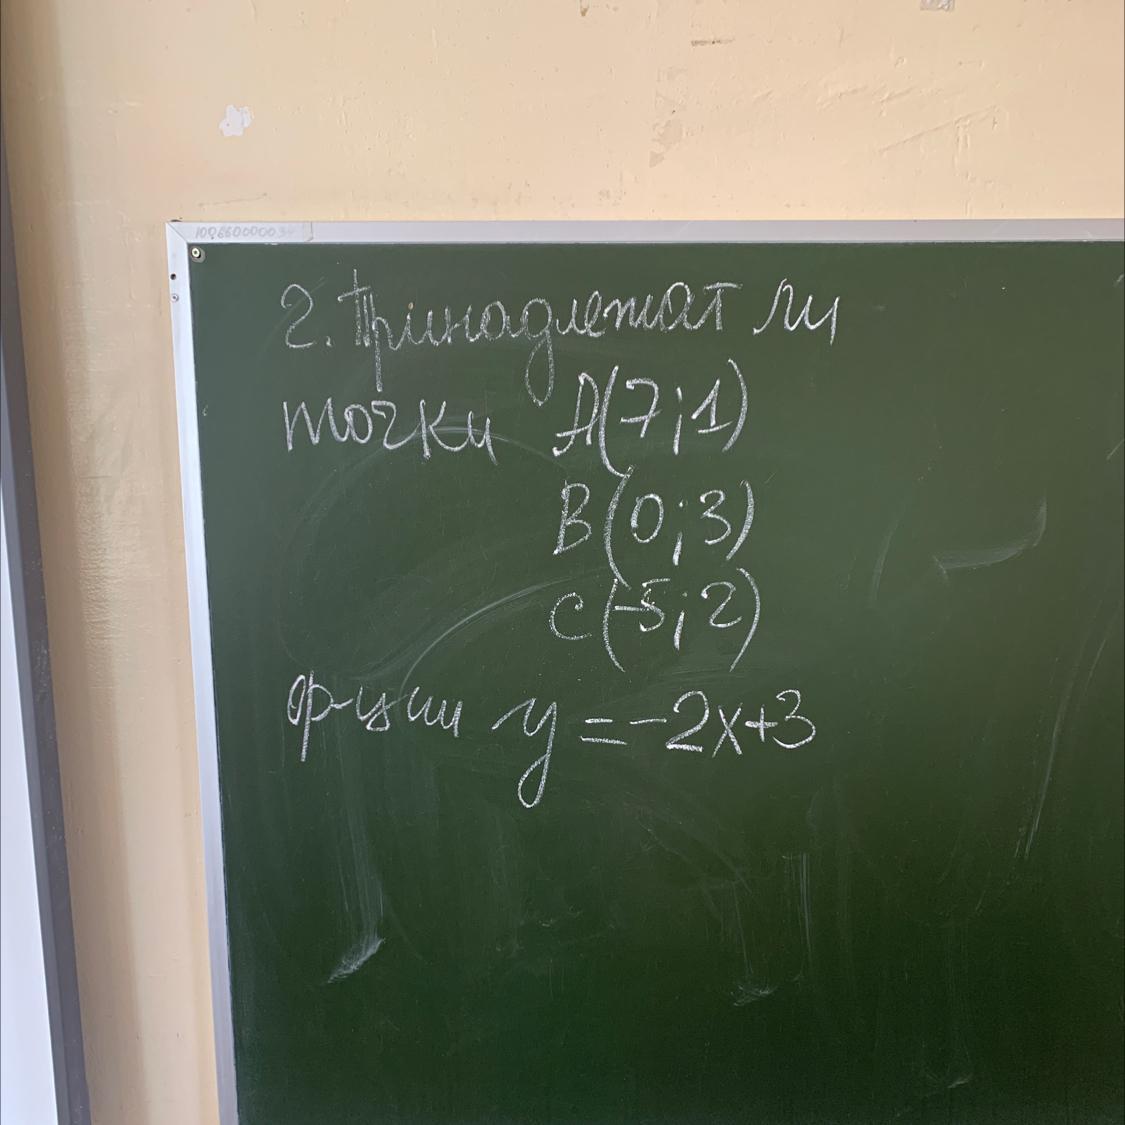 2. Принадлежат ли
точки A(7;1)
B(0;3)
C(-5;2)
ф-ции y=-2x+3